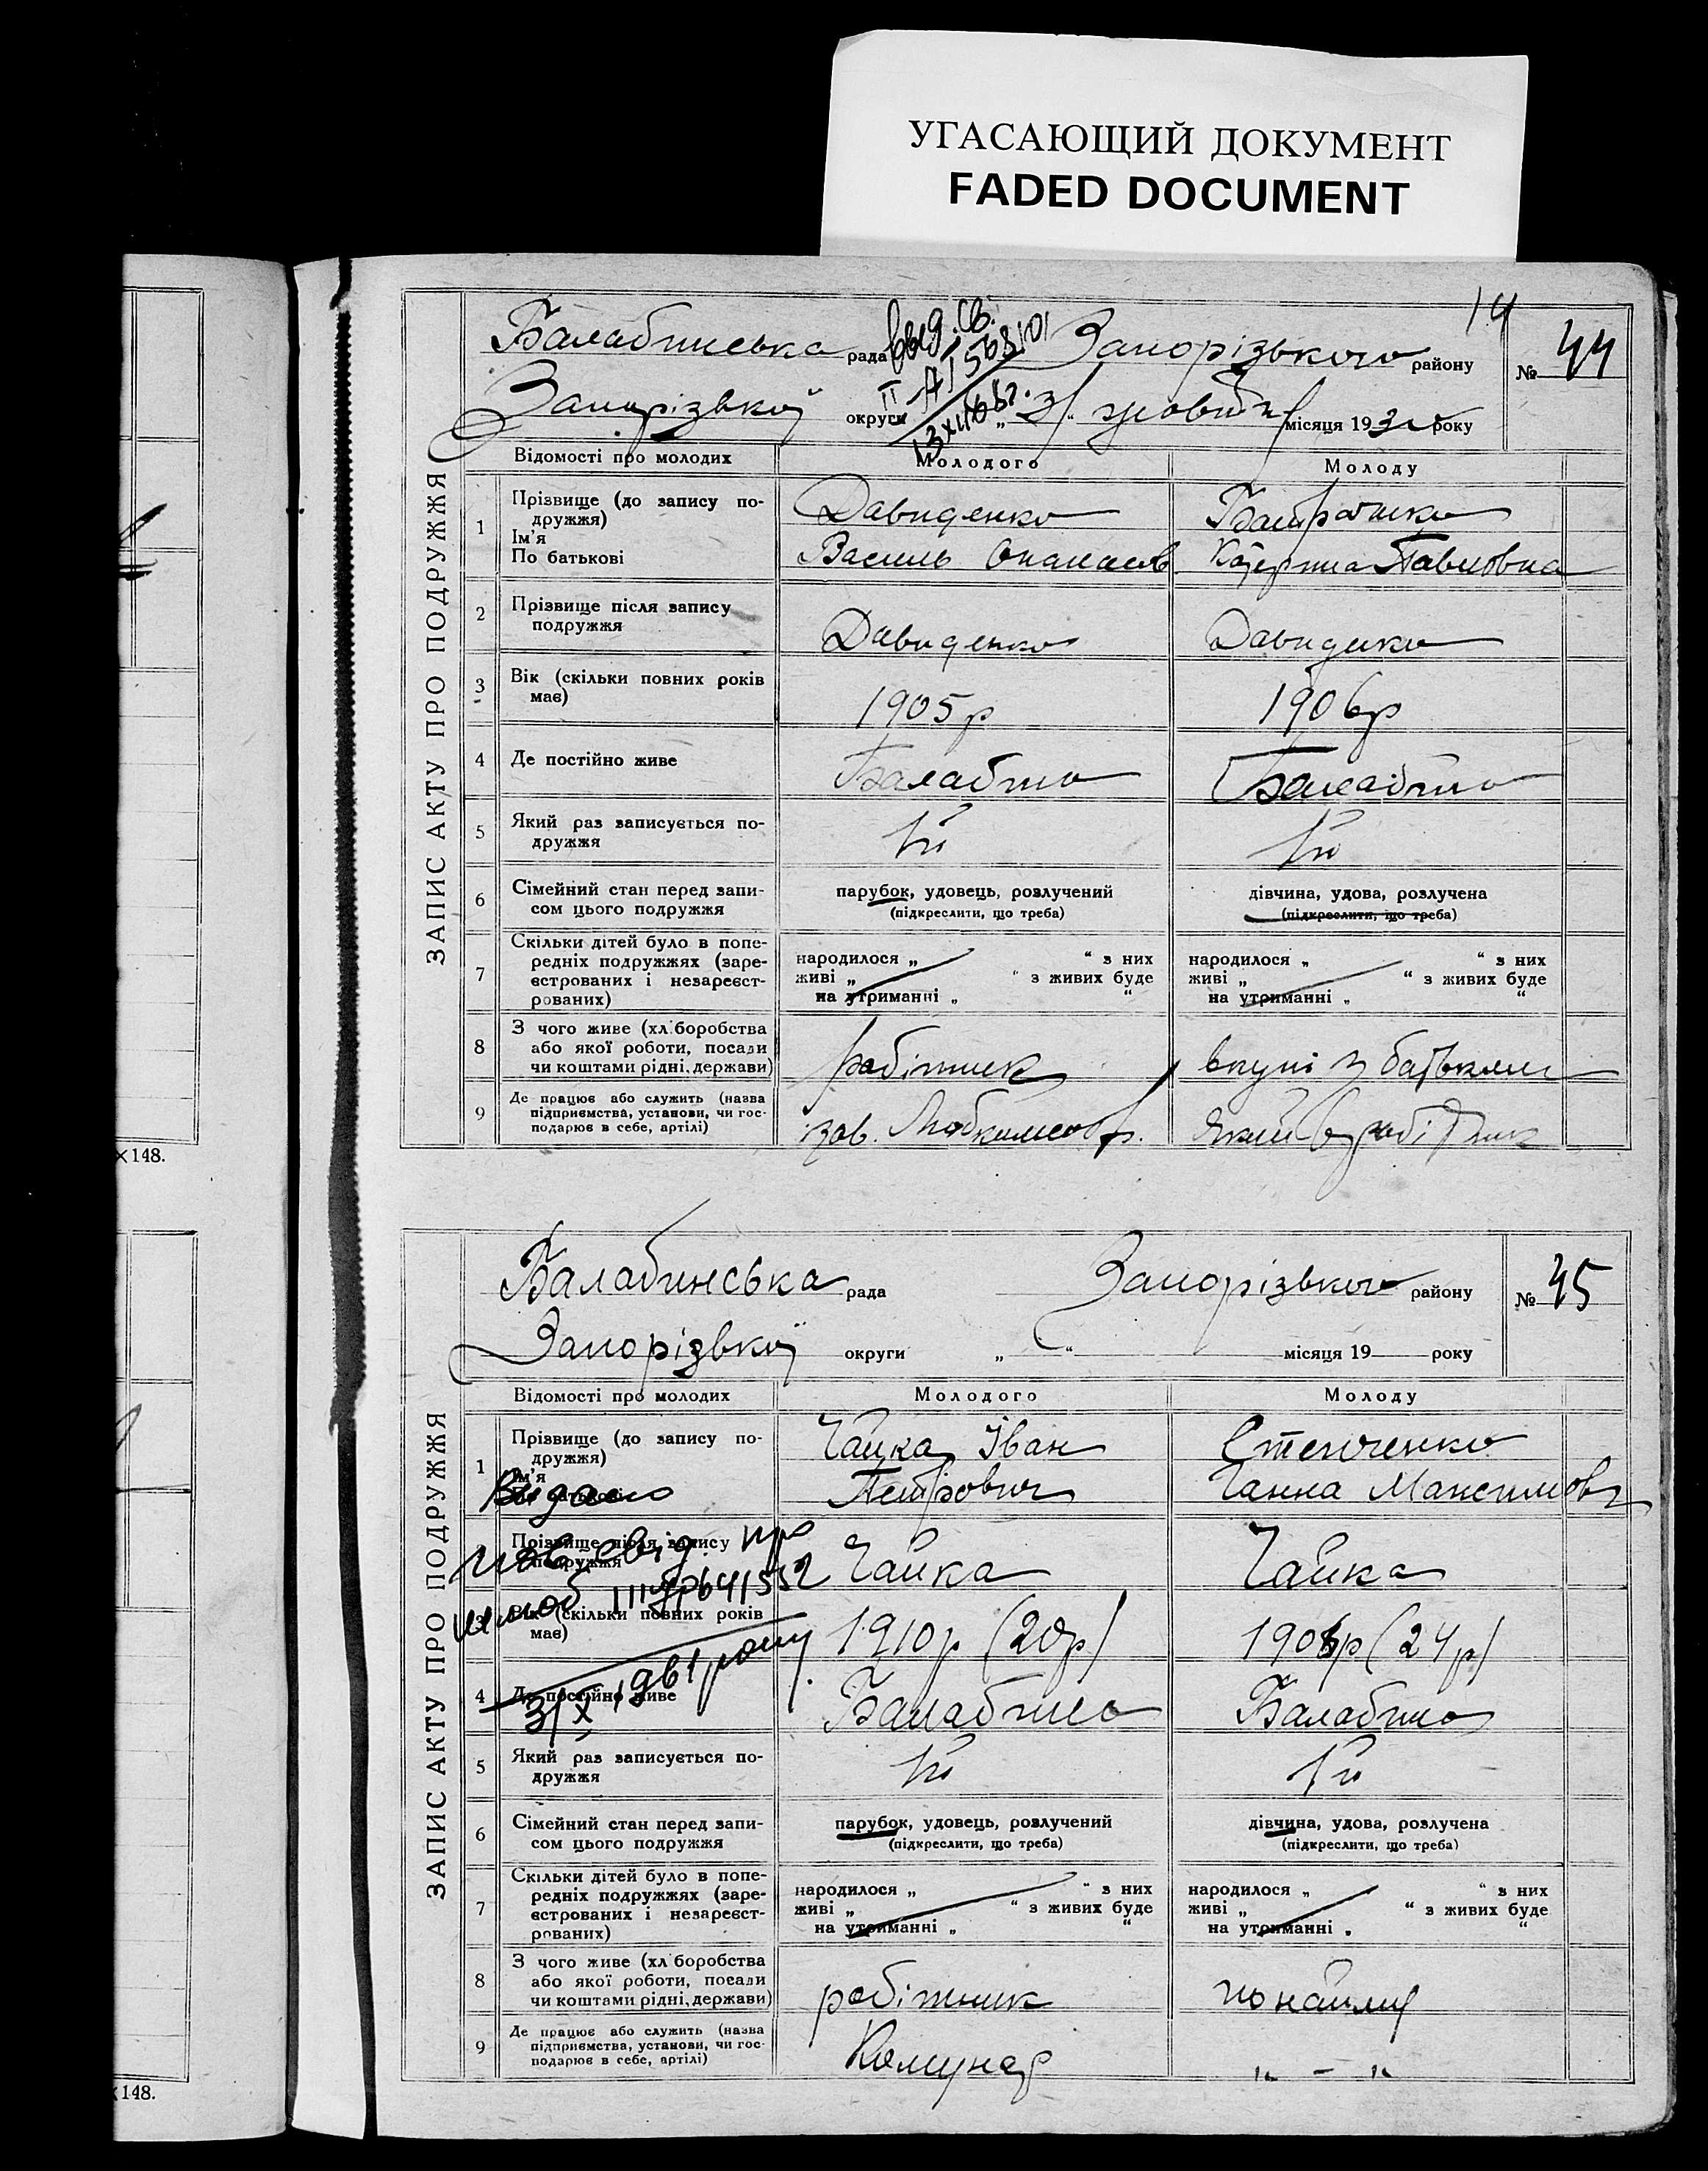 УГАСАЮЩИЙ ДОКУМЕНТ
FADED DOCUMENT
14
ЗАПИС АКТУ ПРО ПОДРУЖЖЯ
Балабинська рада Запорізького району № 44
выд. св.
II АІ 568101
Запорізької округи „ 31. жовтн місяця 1930 року
Відомості про молодих Молодого Молоду
1 Прізвище (до запису по-
дружжя) Давиденко
Ім'я
По батькові Василь Опанасов Катерина Павловна
2 Прізвище після запису
подружжя Давиденко Давиденко
3 Вік (скільки повних років
має) 1905р 1906р
4 Де постійно живе Балабино Балабино
5 Який раз записується по-
дружжя 1й 1й
6 Сімейний стан перед запи-
сом цього подружжя
парубок, удовець, розлучений дівчина, удова, розлучена
(підкреслити, що треба) (підкреслити, що треба)
7 Скільки дітей було в попе-
редніх подружжях (заре-
єстрованих і незареєст-
рованих)
народилося „ “ з них народилося „ “ з них
живі „ “ з живих буде живі „ “ з живих буде
на утриманні „ “ на утриманні „ “
8 З чого живе (хліборобства
або якої роботи, посади
чи коштами рідні, держави) робітник вкупі з батьками
9 Де працює або служить (назва
підприємства, установи, чи гос-
подарює в себе, артілі) зав. робітник
×148.
ЗАПИС АКТУ ПРО ПОДРУЖЖЯ
Балабинська рада Запорізького району № 45
Запорізької округи „ “ місяця 19 року
Відомості про молодих Молодого Молоду
1 Прізвище (до запису по-
дружжя) Чайка Іван
Ім'я
По батькові Петрович Ганна Максимовн
Видано
2 Прізвище після запису
подружжя Чайка Чайка
нов. свід. про
шлюб III 641552
3 Вік (скільки повних років
має) 1910р (20р) 1906р (24р)
3/X 1961 року
4 Де постійно живе Балабино Балабино
5 Який раз записується по-
дружжя 1й 1й
6 Сімейний стан перед запи-
сом цього подружжя
парубок, удовець, розлучений дівчина, удова, розлучена
(підкреслити, що треба) (підкреслити, що треба)
7 Скільки дітей було в попе-
редніх подружжях (заре-
єстрованих і незареєст-
рованих)
народилося „ “ з них народилося „ “ з них
живі „ “ з живих буде живі „ “ з живих буде
на утриманні „ “ на утриманні „ “
8 З чого живе (хліборобства
або якої роботи, посади
чи коштами рідні, держави) робітник по найму
9 Де працює або служить (назва
підприємства, установи, чи гос-
подарює в себе, артілі) Комунар „ – “
×148.